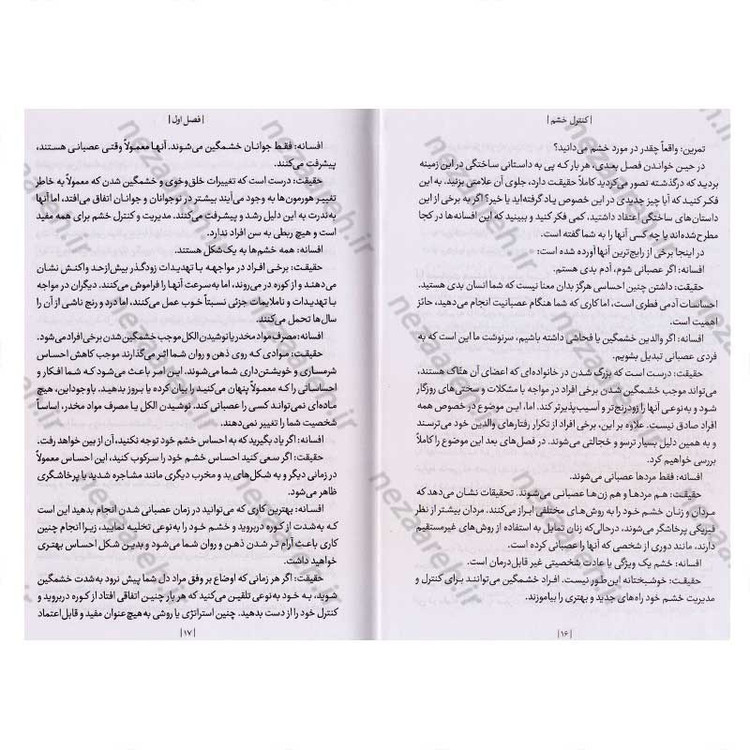 | کنترل خشم |
تمرین: واقعاً چقدر در مورد خشم می‌دانید؟
در حین خواندن فصل بعدی، هر بار که پی به داستانی ساختگی در این زمینه
بردید که در گذشته تصور می‌کردید کاملاً حقیقت دارد، جلوی آن علامتی بزنید. به این
فکر کنید که آیا چیز جدیدی در این خصوص یاد گرفته‌اید یا خیر؟ اگر به برخی از این
داستان‌های ساختگی اعتقاد داشتید، کمی فکر کنید و ببینید که این افسانه‌ها در کجا
مطرح شده‌اند یا چه کسی آنها را به شما گفته است.
در اینجا برخی از رایج‌ترین آنها آورده شده است:
افسانه: اگر عصبانی شوم، آدم بدی هستم.
حقیقت: داشتن چنین احساسی هرگز بدان معنا نیست که شما انسان بدی هستید.
احساسات آدمی فطری است، اما کاری که شما هنگام عصبانیت انجام می‌دهید، حائز
اهمیت است.
افسانه: اگر والدین خشمگین یا فحاشی داشته باشیم، سرنوشت ما این است که به
فردی عصبانی تبدیل بشویم.
حقیقت: درست است که بزرگ شدن در خانواده‌ای که اعضای آن هتاک هستند،
می‌تواند موجب خشمگین شدن برخی افراد در مواجه با مشکلات و سختی‌های روزگار
شود و به نوعی آنها را زودرنج‌تر و آسیب‌پذیرتر کند. اما، این موضوع در خصوص همه
افراد صادق نیست. علاوه بر این، برخی از افراد از تکرار رفتارهای والدین خود می‌ترسند
و به همین دلیل بسیار ترسو و خجالتی می‌شوند. در فصل‌های بعد این موضوع را کاملاً
بررسی خواهیم کرد.
افسانه: فقط مردها عصبانی می‌شوند.
حقیقت: هم مردها و هم زن‌ها عصبانی می‌شوند. تحقیقات نشان می‌دهد که
مردان و زنان خشم خود را به روش‌های مختلفی ابراز می‌کنند. مردان بیشتر از نظر
فیزیکی پرخاشگر می‌شوند، درحالی‌که زنان تمایل به استفاده از روش‌های غیرمستقیم
دارند، مانند دوری از شخصی که آنها را عصبانی کرده است.
افسانه: خشم یک ویژگی یا عادت شخصیتی غیر قابل درمان است.
حقیقت: خوشبختانه این‌طور نیست. افراد خشمگین می‌توانند برای کنترل و
مدیریت خشم خود راه‌های جدید و بهتری را بیاموزند.
| ۱۶ |
| فصل اول |
افسانه: فقط جوانان خشمگین می‌شوند. آنها معمولاً وقتی عصبانی هستند،
پیشرفت می‌کنند.
حقیقت: درست است که تغییرات خلق‌وخوی و خشمگین شدن که معمولاً به خاطر
تغییر هورمون‌ها به وجود می‌آیند بیشتر در نوجوانان و جوانان اتفاق می‌افتد، اما آنها
به‌ندرت به این دلیل رشد و پیشرفت می‌کنند. مدیریت و کنترل خشم برای همه مفید
است و هیچ ربطی به سن افراد ندارد.
افسانه: همه خشم‌ها به یک شکل هستند.
حقیقت: برخی افراد در مواجهه با تهدیدات زودگذر بیش‌ازحد واکنش نشان
می‌دهند و از کوره در می‌روند، اما به‌سرعت آنها را فراموش می‌کنند. دیگران در مواجه
با تهدیدات و ناملایمات جزئی نسبتاً خوب عمل می‌کنند، اما درد و رنج ناشی از آن را
سال‌ها تحمل می‌کنند.
افسانه: مصرف مواد مخدر یا نوشیدن الکل موجب خشمگین شدن برخی افراد می‌شود.
حقیقت: موادی که روی ذهن و روان شما اثر می‌گذارند موجب کاهش احساس
شرمساری و خویشتن‌داری شما می‌شوند. این امر باعث می‌شود که شما افکار و
احساساتی را که معمولاً پنهان می‌کنید را بیان کرده یا بروز بدهید. باوجوداین، هیچ
ماده‌ای نمی‌تواند کسی را عصبانی کند. نوشیدن الکل یا مصرف مواد مخدر، اساساً
شخصیت شما را تغییر نمی‌دهند.
افسانه: اگر یاد بگیرید که به احساس خشم خود توجه نکنید، آن از بین خواهد رفت.
حقیقت: اگر سعی کنید احساس خشم خود را سرکوب کنید، این احساس معمولاً
در زمانی دیگر و به شکل‌های بد و مخرب دیگری مانند مشاجره شدید یا پرخاشگری
ظاهر می‌شود.
افسانه: بهترین کاری که می‌توانید در زمان عصبانی شدن انجام بدهید این است
که به‌شدت از کوره دربروید و خشم خود را به‌نوعی تخلیه نمایید، زیرا انجام چنین
کاری باعث آرام تر شدن ذهن و روان شما می‌شود و بدین شکل احساس بهتری
خواهید داشت.
حقیقت: اگر هر زمانی که اوضاع بر وفق مراد دل شما پیش نرود به‌شدت خشمگین
شوید، به خود به‌نوعی تلقین می‌کنید که هر بار چنین اتفاقی افتاد از کوره دربروید و
کنترل خود را از دست بدهید. چنین استراتژی یا روشی به هیچ عنوان مفید و قابل اعتماد
| ۱۷ |
nezaareh.ir